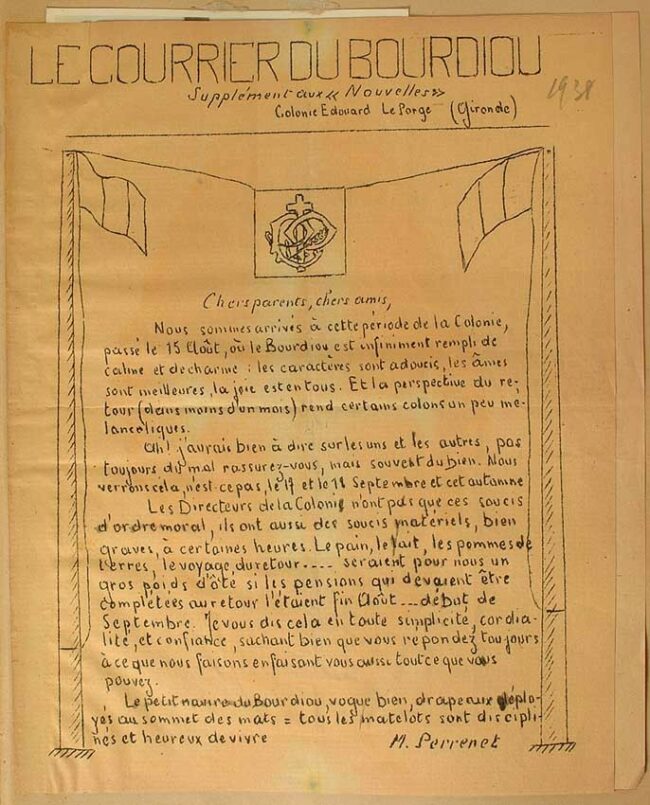 LE COURRIER DU BOURDIOU
Supplément aux « Nouvelles »
1938
Colonie Edouard Le Porge (Gironde)
Chers parents, chers amis,
Nous sommes arrivés à cette période de la Colonie,
passé le 15 Août, où le Bourdiou est infiniment rempli de
calme et de charme : les caractères sont adoucis, les âmes
sont meilleures, la joie est en tous. Et la perspective du re-
tour (dans moins d'un mois) rend certains colons un peu mé-
lancoliques.
Ah! j'aurais bien à dire sur les uns et les autres, pas
toujours du mal rassurez-vous, mais souvent du bien. Nous
verrons cela, n'est ce pas, le 17 et le 18 Septembre et cet automne
Les Directeurs de la Colonie n'ont pas que ces soucis
d'ordre moral, ils ont aussi des soucis matériels, bien
graves, à certaines heures. Le pain, le lait, les pommes de
terres, le voyage du retour .... seraient pour nous un
gros poids d'ôté si les pensions qui devaient être
complétées au retour l'étaient fin Août ... début de
Septembre. Je vous dis cela en toute simplicité, cordia-
lité, et confiance, sachant bien que vous répondez toujours
à ce que nous faisons en faisant vous aussi tout ce que vous
pouvez.
Le petit navire du Bourdiou, vogue bien, drapeaux déplo-
yés au sommet des mats = tous les matelots sont discipli-
nés et heureux de vivre
M. Perrenet